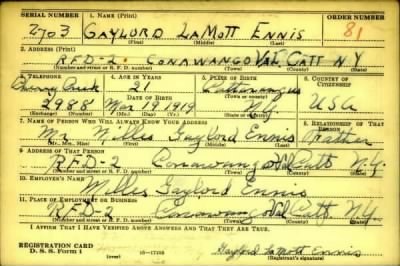 SERIAL NUMBER 1. NAME (Print) ORDER NUMBER
2703 GAYLORD LAMOTT ENNIS 81
(First) (Middle) (Last)
2. ADDRESS (Print)
RFD-2. CONAWANGO VAL CATT N Y
(Number and street or R. F. D. number) (Town) (County) (State)
3. TELEPHONE 4. AGE IN YEARS 5. PLACE OF BIRTH 6. COUNTRY OF CITIZENSHIP
Cherry Creek 21 Cattaraugus
DATE OF BIRTH (Town or county)
2988 Mar 19 1919 N.Y. USA
(Mo.) (Day) (Yr.) (State or country)
7. NAME OF PERSON WHO WILL ALWAYS KNOW YOUR ADDRESS 8. RELATIONSHIP OF THAT PERSON
Mr Willes Gaylord Ennis Father
(Mr., Mrs., Miss) (First) (Middle) (Last)
9. ADDRESS OF THAT PERSON
RFD-2 Conawango Val Catt N.Y.
(Number and street or R. F. D. number) (Town) (County) (State)
10. EMPLOYER'S NAME
Willes Gaylord Ennis
11. PLACE OF EMPLOYMENT OR BUSINESS
RFD-2 Conawango Val Catt. N.Y.
(Number and street or R. F. D. number) (Town) (County) (State)
I AFFIRM THAT I HAVE VERIFIED ABOVE ANSWERS AND THAT THEY ARE TRUE.
REGISTRATION CARD
D. S. S. Form 1 (over) 16-17105 Gaylord LaMott Ennis
(Registrant's signature)